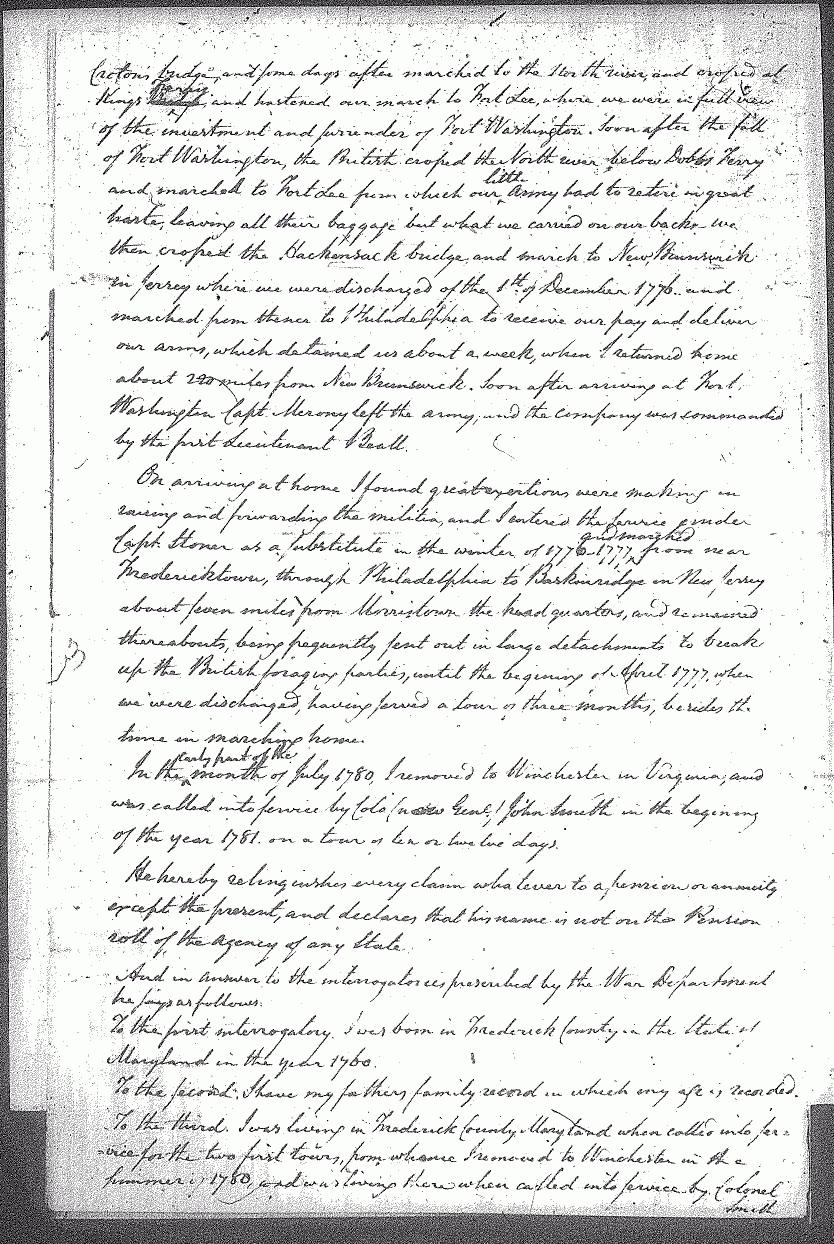 Crotons bridge, and some days after marched to the North river, and crossed at
Kings Ferry, and hastened our march to Fort Lee, where we were in full view
of the investment and surrender of Fort Washington. Soon after the fall
of Fort Washington, the British crossed the North river below Dobbs Ferry
and marched to Fort Lee from which our little Army had to retire in great
haste, leaving all their baggage but what we carried on our backs. we
then crossed the Hackensack bridge, and march to New Brunswick
in Jersey where we were discharged of the 1st of December 1776. and
marched from thence to Philadelphia to receive our pay and deliver
our arms, which detained us about a week, when I returned home
about 220 miles from New Brunswick. Soon after arriving at Fort
Washington Capt. Merony left the army, and the company was commanded
by the first Lieutenant Beall.
On arriving at home I found great exertions were making in
raising and forwarding the militia, and I entered the service under
Capt. Stoner as a substitute in the winter of 1776-1777, and marched from near
Fredericktown, through Philadelphia to Baskinridge in New Jersey
about seven miles from Morristown the head quarters, and remained
thereabouts, being frequently sent out in large detachments to break
up the British foraging parties, until the begining of April 1777, when
we were discharged, having served a tour of three months, besides the
time in marching home.
In the early part of the month of July 1780, I removed to Winchester in Virginia, and
was called into service by Colo. (now Genl.) John Smith in the begining
of the year 1781. on a tour of ten or twelve days.
He hereby relinquishes every claim whatever to a pension or annuity
except the present, and declares that his name is not on the Pension
roll of the agency of any State.
And in answer to the interrogatories prescribed by the War Department
he says as follows.
To the first interrogatory. I was born in Frederick County in the State of
Maryland in the year 1760.
To the second. I have my fathers family record in which my age is recorded.
To the third. I was living in Frederick County Maryland when called into ser-
-vice for the two first tours, from whence I removed to Winchester in the
summer of 1780, and was living there when called into service by Colonel
Smith